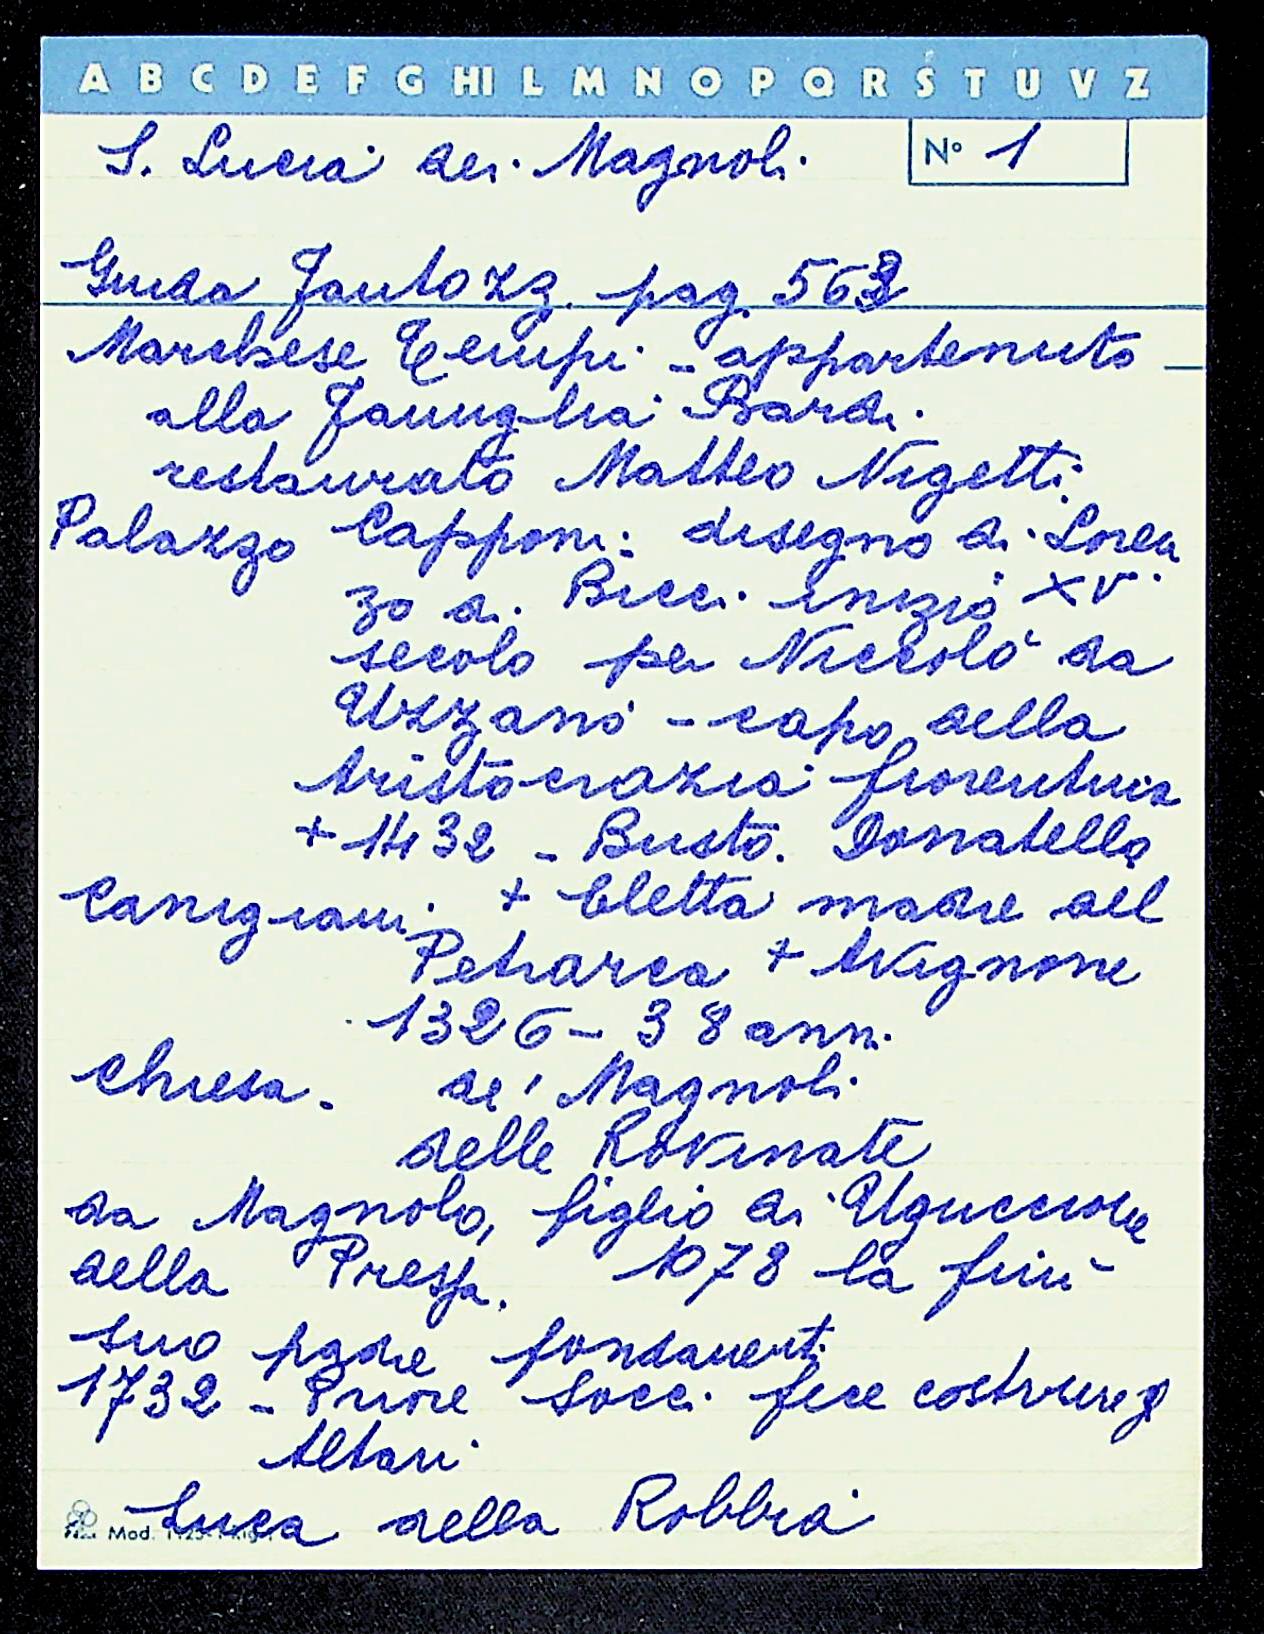 A B C D E F G HI L M N O P Q R S T U V Z
S. Lucia dei Magnoli
N° 1
Guida Fantozzi pag 563
Marchese Tempi - appartenuto -
alla Famiglia Bardi.
restaurato Matteo Nigetti.
Palazzo Capponi: disegno di Loren
zo di Bicci inizio XV
secolo per Niccolò da
Uzzano - capo della
Aristocrazia fiorentina
+ 1432 - Busto. Donatello
Canigiani + Eletta madre del
Petrarca + Avignone
1326 - 38 anni.
Chiesa. de' Magnoli
delle Rovinate
da Magnolo, figlio di Uguccione
della Pressa. 1078 la finì
suo padre fondamenti
1732 - Priore Socci fece costruire
Altari
Luca della Robbia
Mod.